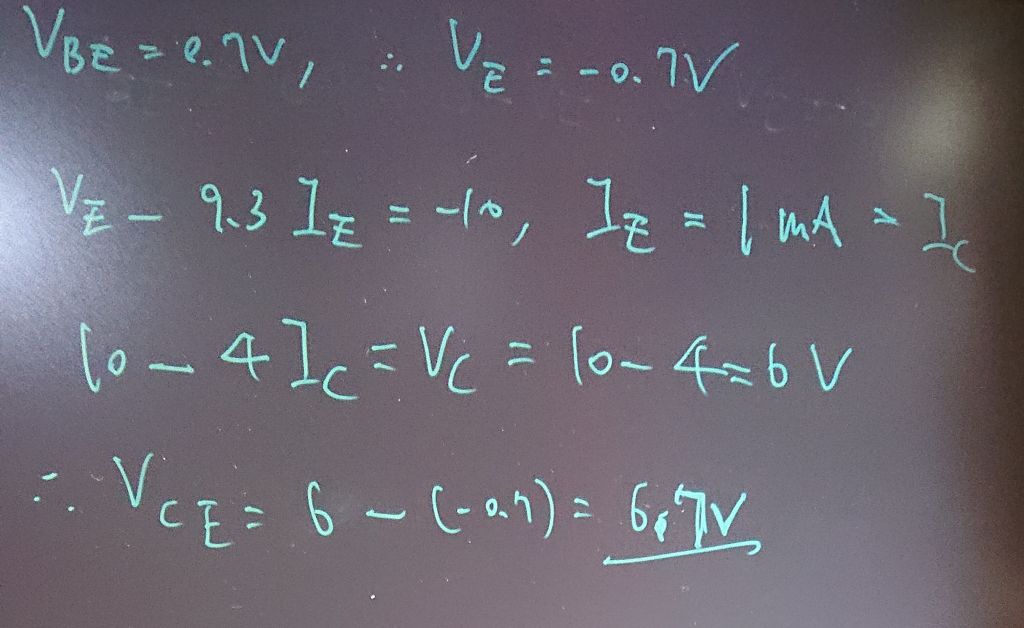 V_BE = 0.7V, ∴ V_E = -0.7V
V_E - 9.3 I_E = -10, I_E = 1 mA = I_C
10 - 4 I_C = V_C = 10 - 4 = 6 V
∴ V_CE = 6 - (-0.7) = 6.7V